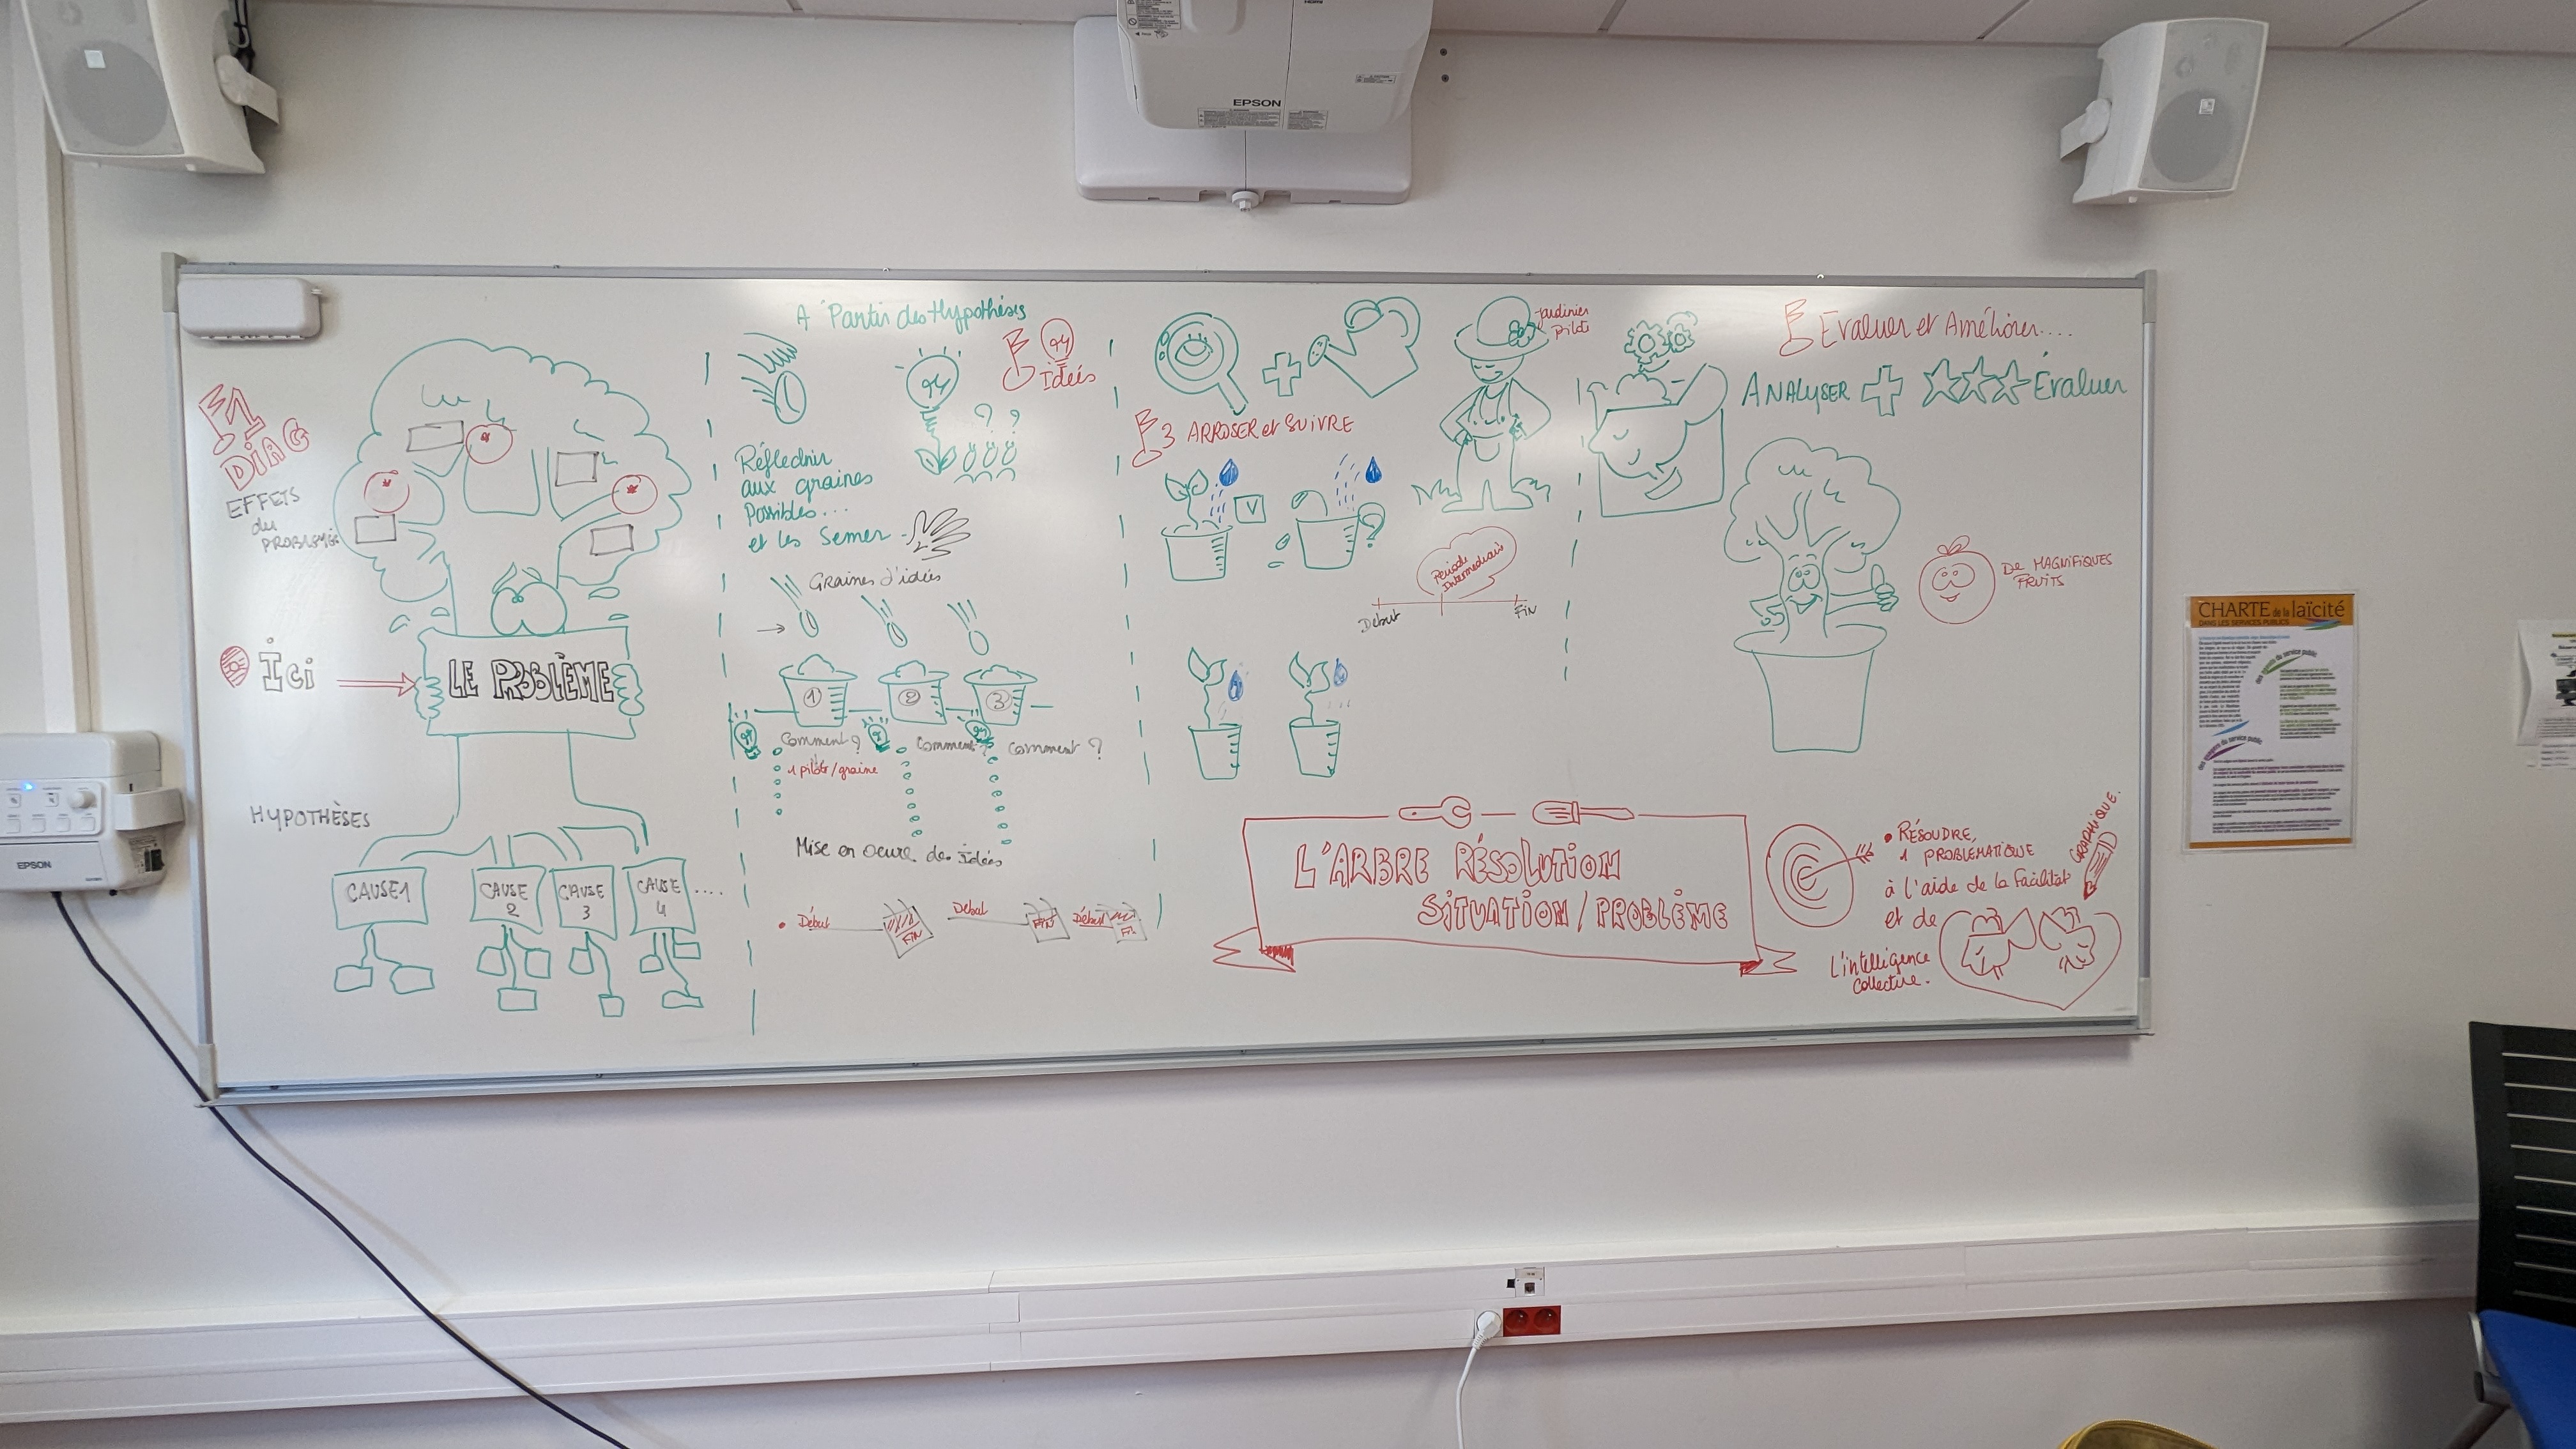 EPSON
1
DIAG
EFFETS
du
PROBLÈME
Ici
LE PROBLÈME
HYPOTHÈSES
CAUSE 1
CAUSE
2
CAUSE
3
CAUSE
4
....
A Partir des Hypothèses
Idées
Réflechir
aux graines
Possibles...
et les Semer
Graines d'idées
1
2
3
Comment ?
Comment ?
Comment ?
1 pilote/graine
Mise en oeuvre des Idées
• Début
FIN
Début
FIN
Début
Fin
3 ARROSER et SUIVRE
V
?
Jardinier
pilote
Période
Intermédiaire
Début
Fin
Evaluer et Améliorer....
ANALYSER
Évaluer
De MAGNIFIQUES
FRUITS
L'ARBRE RÉSOLUTION
SITUATION/PROBLÈME
• RÉSOUDRE
1 PROBLEMATIQUE
à l'aide de la Facilitat°
GRAPHIQUE.
et de
L'intelligence
Collective.
CHARTE de la laïcité
DANS LES SERVICES PUBLICS
des agents du service public
des usagers du service public
EPSON